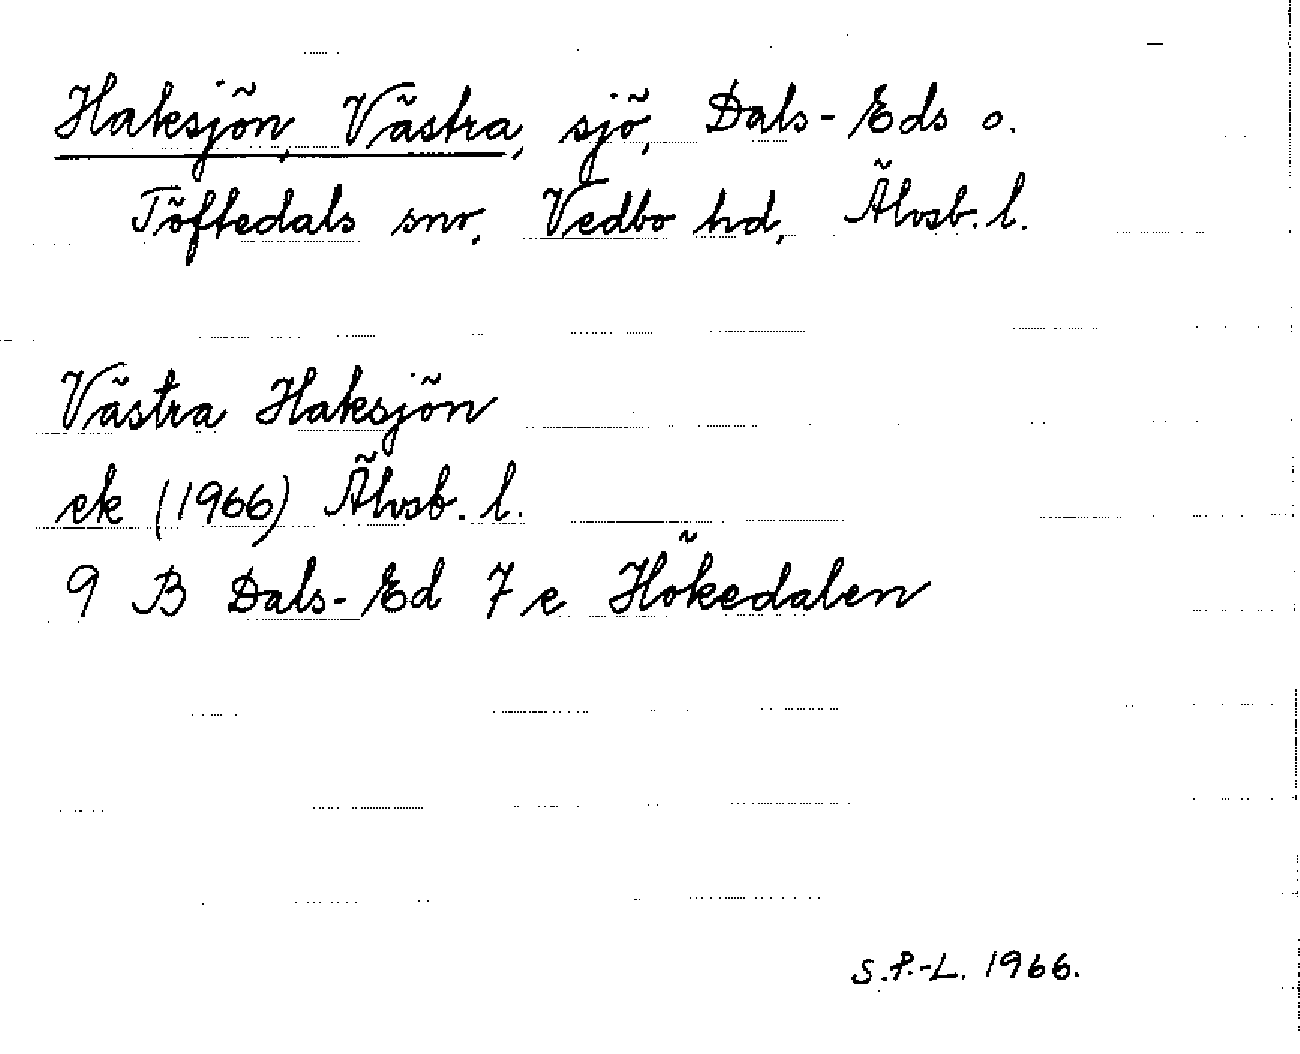 Haksjön, Västra, sjö, Dals-Eds o.
Töftedals snr, Vedbo hd, Älvsb. l.
Västra Haksjön
ek (1966) Älvsb. l.
9 B Dals-Ed 7 e Hökedalen
S.P.-L. 1966.